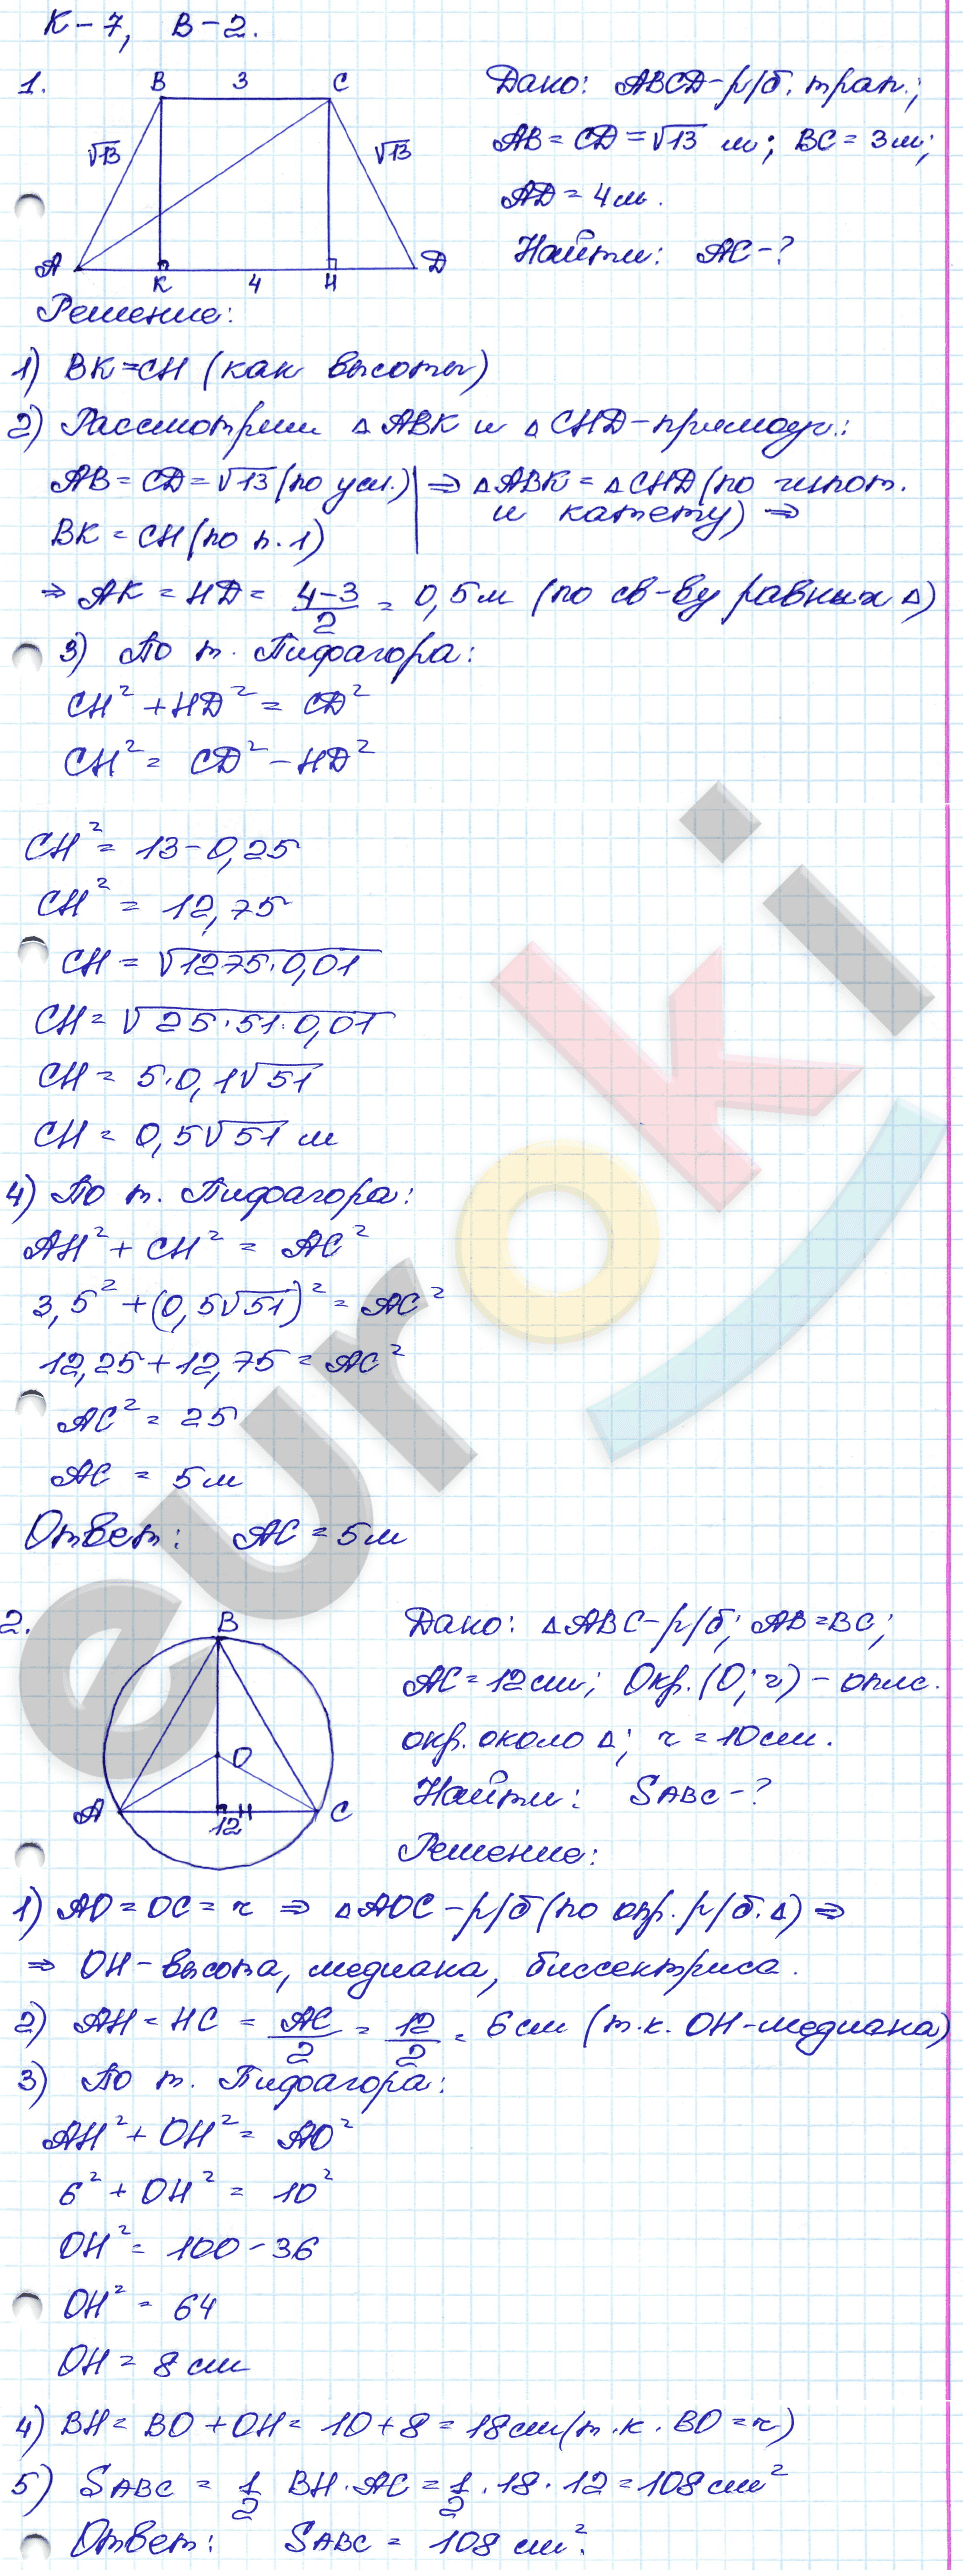 К-7, В-2.
1.
B 3 C
√13 √13
A K 4 H D
Дано: ABCD-р/б. трап.;
AB = CD = √13 м; BC = 3м;
AD = 4м.
Найти: AC-?
Решение:
1) BK=CH (как высоты)
2) Рассмотрим △ABK и △CHD-прямоуг.:
AB = CD = √13 (по усл.) | ⇒ △ABK = △CHD (по гипот.
и катету) ⇒
BK = CH (по п.1)
⇒ AK = HD = (4-3)/2 = 0,5м (по св-ву равных △)
3) По т. Пифагора:
CH² + HD² = CD²
CH² = CD² - HD²
CH² = 13-0,25
CH² = 12,75
CH = √1275·0,01
CH = √25·51·0,01
CH = 5·0,1√51
CH = 0,5√51 м
4) По т. Пифагора:
AH² + CH² = AC²
3,5² + (0,5√51)² = AC²
12,25+12,75 = AC²
AC² = 25
AC = 5м
Ответ: AC = 5м
2.
B
O
A H C
12
Дано: △ABC-р/б; AB=BC;
AC=12см; Окр.(O; r) - опис.
окр. около △; r = 10см.
Найти: SABC-?
Решение:
1) AO = OC = r ⇒ △AOC-р/б (по опр. р/б. △) ⇒
⇒ OH-высота, медиана, биссектриса.
2) AH = HC = AC/2 = 12/2 = 6см (т.к. OH-медиана)
3) По т. Пифагора:
AH² + OH² = AO²
6² + OH² = 10²
OH² = 100-36
OH² = 64
OH = 8см
4) BH = BO + OH = 10+8 = 18см (т.к. BO = r)
5) SABC = 1/2 BH·AC = 1/2·18·12 = 108см²
Ответ: SABC = 108 см².
euroki